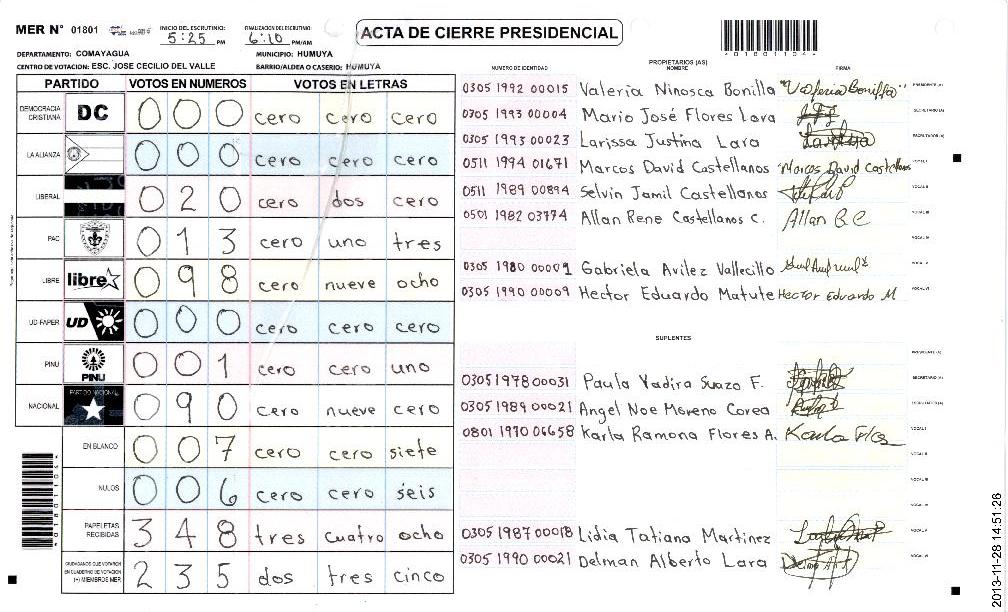 MER N° 01801 INICIO DEL ESCRUTINIO: 5:25 PM FINALIZACION DEL ESCRUTINIO: 6:10 PM/AM ACTA DE CIERRE PRESIDENCIAL
DEPARTAMENTO: COMAYAGUA MUNICIPIO: HUMUYA
CENTRO DE VOTACION: ESC. JOSE CECILIO DEL VALLE BARRIO/ALDEA O CASERIO: HUMUYA
PARTIDO VOTOS EN NUMEROS VOTOS EN LETRAS
DEMOCRACIA CRISTIANA DC 0 0 0 cero cero cero
LA ALIANZA 0 0 0 cero cero cero
LIBERAL 0 2 0 cero dos cero
PAC 0 1 3 cero uno tres
LIBRE libre 0 9 8 cero nueve ocho
UD-FAPER UD 0 0 0 cero cero cero
PINU PINU 0 0 1 cero cero uno
NACIONAL PARTIDO NACIONAL 0 9 0 cero nueve cero
EN BLANCO 0 0 7 cero cero siete
NULOS 0 0 6 cero cero seis
PAPELETAS RECIBIDAS 3 4 8 tres cuatro ocho
CIUDADANOS QUE VOTARON EN CUADERNO DE VOTACION (+) MIEMBROS MER 2 3 5 dos tres cinco
PROPIETARIOS (AS)
NUMERO DE IDENTIDAD NOMBRE FIRMA
0305 1992 00015 Valeria Ninosca Bonilla "Valeria Bonilla" PRESIDENTE (A)
0305 1993 00004 Mario José Flores Lara SECRETARIO (A)
0305 1993 00023 Larissa Justina Lara ESCRUTADOR (A)
0511 1994 01671 Marcos David Castellanos Marcos David Castellanos VOCAL I
0511 1989 00894 Selvin Jamil Castellanos VOCAL II
0501 1982 03774 Allan Rene Castellanos C. Allan R C VOCAL III
VOCAL IV
0305 1980 00009 Gabriela Avilez Vallecillo VOCAL V
0305 1990 00009 Hector Eduardo Matute Hector Eduardo M VOCAL VI
SUPLENTES
PRESIDENTE (A)
0305 1978 00031 Paula Yadira Suazo F. SECRETARIO (A)
0305 1989 00021 Angel Noe Moreno Corea ESCRUTADOR (A)
0801 1970 06658 Karla Ramona Flores A. Karla Flores VOCAL I
VOCAL II
VOCAL III
VOCAL IV
0305 1987 00018 Lidia Tatiana Martinez VOCAL V
0305 1990 00021 Delman Alberto Lara VOCAL VI
2013-11-28 14:51:26